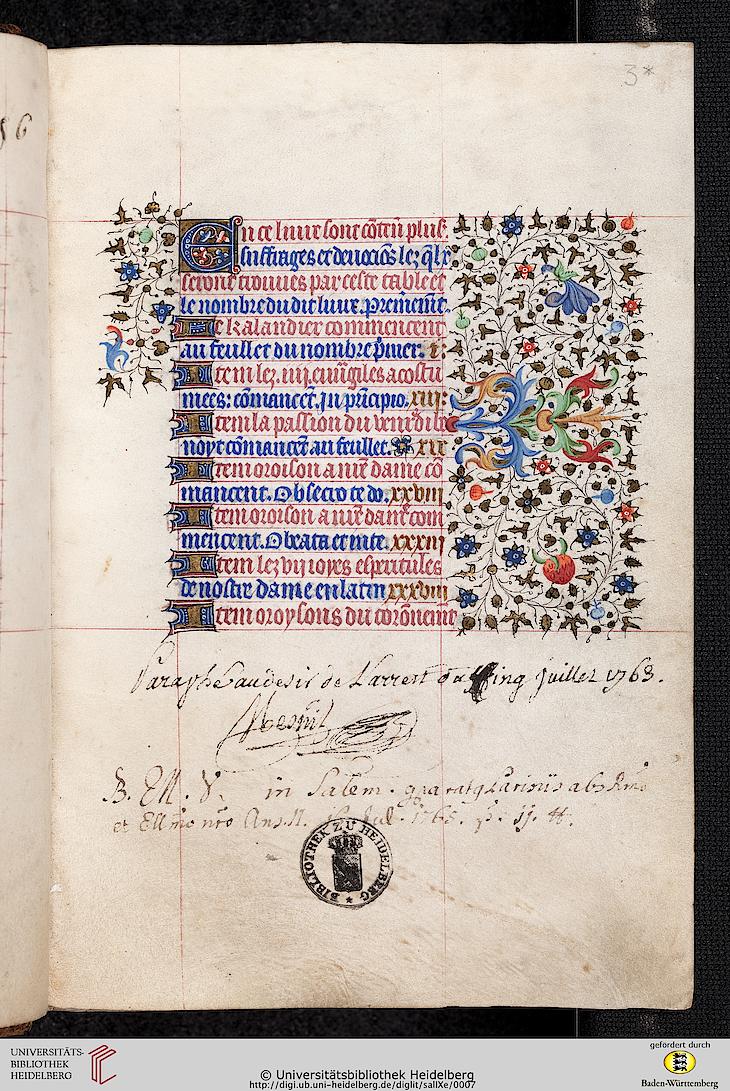 3*
56
En ce livre sont cõtenꝰ plusꝰ
suffrages et devociõs lez q̃lx
seront trouves par ceste tablé et
le nombre du dit livre. Premierem̃t
Le kalandier commencent
au feullet du nombre p̃mier. i:
Item lez .iiij. euṽgiles acostu
mees: cõmancẽt. In pñcipio. xiii:
Item la passion du venꝰdi be
noyt cõmancẽt au feullet. xix
Item oroison a nr̃e dame cõ
mancent. Obsecro te do. xxviii
Item ororson a nr̃e dame com
mencent. O beata et inte. xxxiii
Item lez vii ioyes esperitules
de nostre dame en latin xxxviii
Item oroysons du corõnemẽt
Paraphé au desir de L'arrest du cinq juillet 1763.
Mesnil
B. Ell. V. in Salem
et Ell 1765.
BIBLIOTHEK ZU HEIDELBERG *
UNIVERSITÄTS-
BIBLIOTHEK
HEIDELBERG
© Universitätsbibliothek Heidelberg
http://digi.ub.uni-heidelberg.de/diglit/salIXe/0007
gefördert durch
Baden-Württemberg